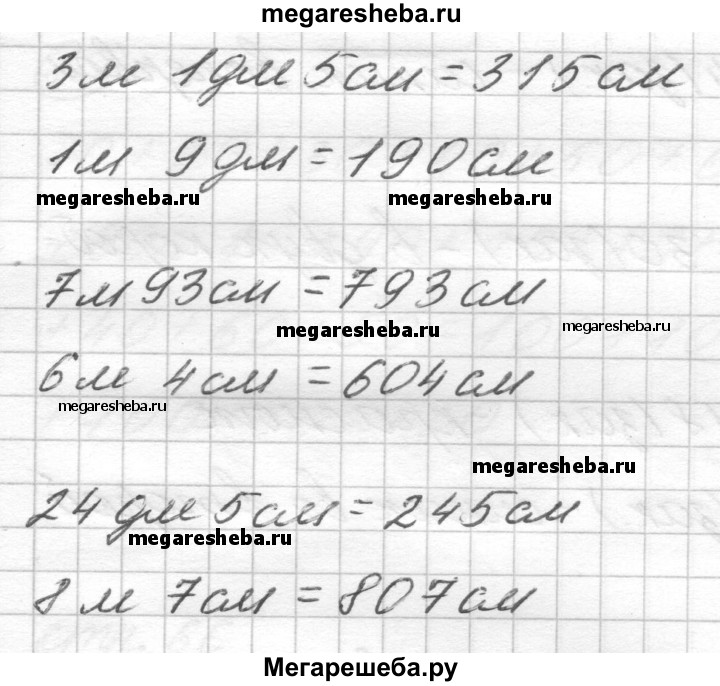 megaresheba.ru
3м 1дм 5см = 315см
1м 9дм = 190см
megaresheba.ru megaresheba.ru
7м 93см = 793см
megaresheba.ru megaresheba.ru
6м 4см = 604см
megaresheba.ru
megaresheba.ru
24 дм 5см = 245см
megaresheba.ru
8м 7см = 807см
Мегарешеба.ру